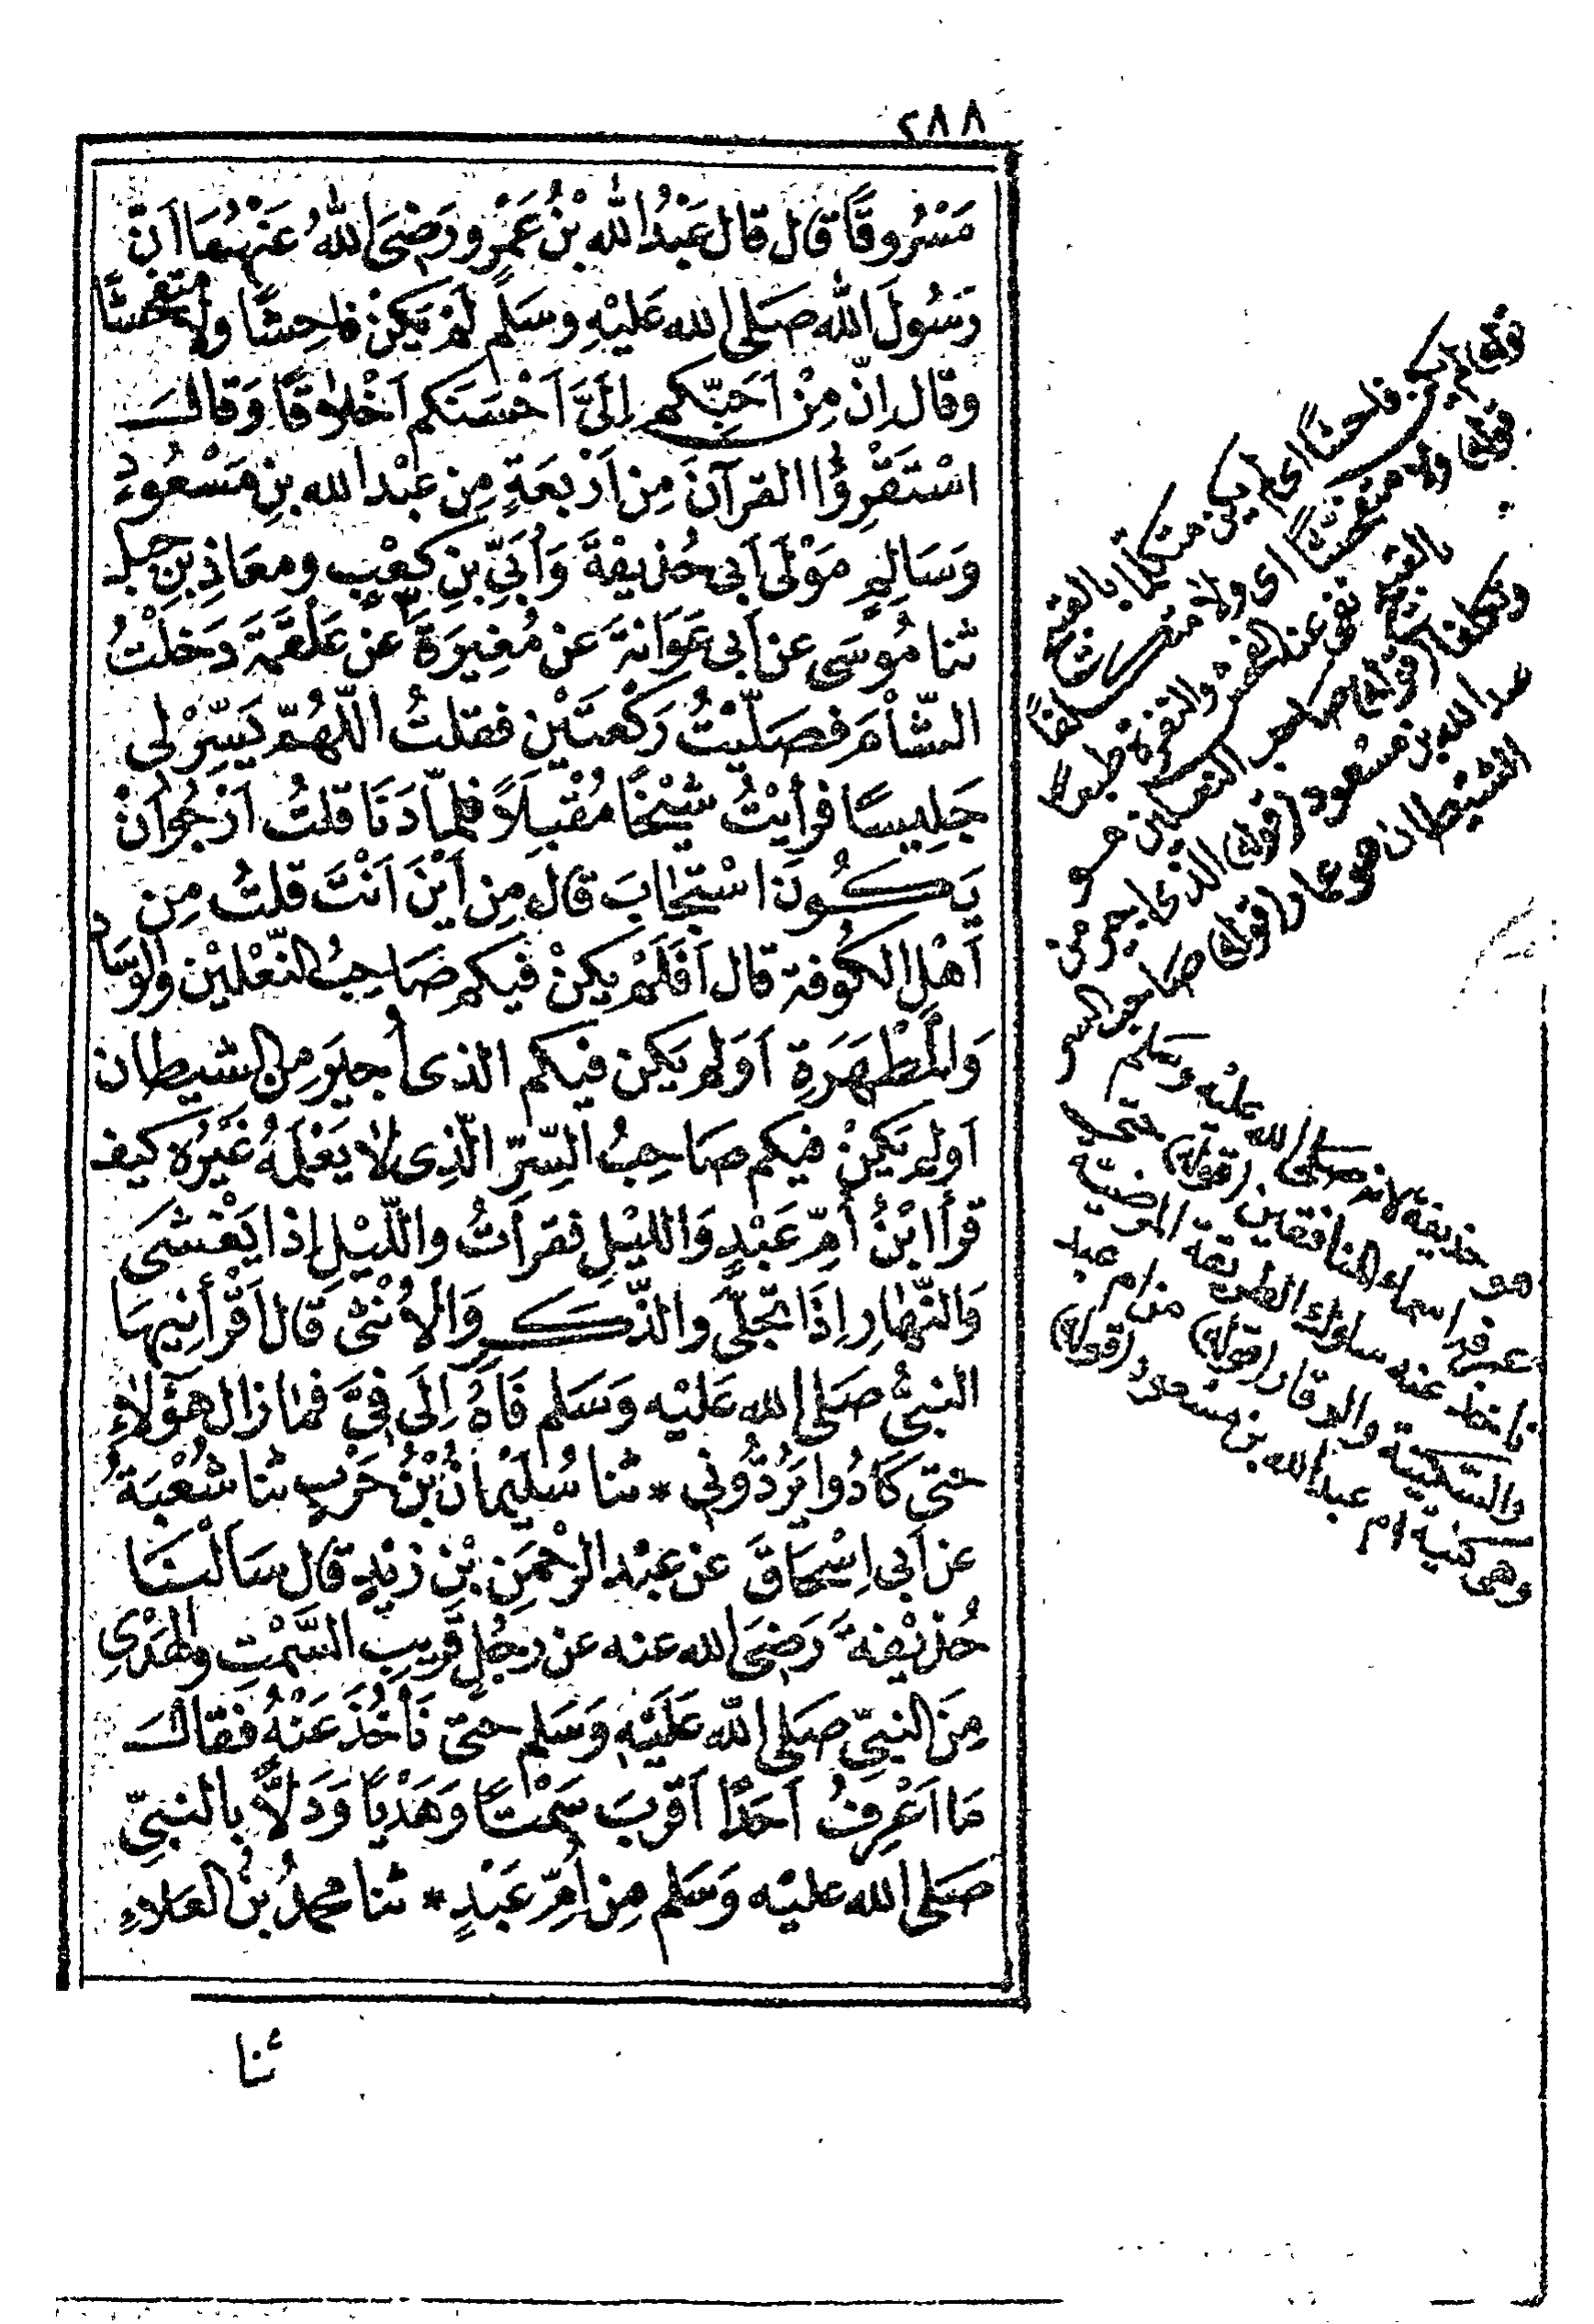 ٢٨٨
مَسْرُوقًا قال قال عَبْدُ اللهِ بْنُ عَمْرٍو رَضِىَ اللهُ عَنْهُمَا اَنّ
رَسُولَ اللهِ صَلى الله عَلَيْهِ وسَلم لَمْ يَكنْ فاحِشًا ولا مُتَفحِّشًا
وقال اِنّ مِنْ اَحَبِّكم اِلَىَّ اَحْسَنَكم اَخْلاقًا وَقالَ
اسْتَقْرِؤُا القرآنَ مِن اَرْبعَةٍ مِن عَبْد الله بنِ مَسْعُودٍ
وَسَالِمٍ مَوْلَى اَبى حُذيفةَ وَاُبَىِّ بنِ كَعْبٍ ومعَاذِ بنِ جبل
ثنا مُوسَى عن اَبى عَوَانةَ عَن مُغِيرَةَ عَن عَلْقَمَةَ دَخلْتُ
الشّأمَ فصَلّيْتُ رَكْعَتَيْن فقلتُ اللّهُمّ يَسِّرْ لى
جَلِيسًا فرأيْتُ شَيْخًا مُقْبِلاً فلمّا دَنَا قلتُ اَرْجُو اَنْ
يَكُونَ اسْتَجَابَ قال مِن اَيْنَ اَنْتَ قلتُ مِن
اَهْلِ الكُوفة قال اَفَلَمْ يكنْ فيكم صَاحِبُ النّعْلَيْن والوِسَاد
وَالمِطْهَرَةِ اَوَلم يَكن فيكم الذى اُجِيرَ مِن الشيطان
اَوَلم يَكنْ فيكم صَاحِبُ السِّرّ الّذِى لا يَعْلمَهُ غَيْرُه كيف
قرأ ابْنُ اُمِّ عَبْدٍ وَالليْلِ فقرَأتُ واللّيْلِ اِذا يَغْشَى
وَالنّهارِ اِذَا تجَلَّى والذّكَرِ وَالاُنْثى قال اَقْرَأنِيهَا
النبىُّ صَلى الله عَلَيْه وَسَلم فَاهُ اِلَى فِىَّ فمازال هَؤلاءِ
حتى كَادُوا يَرُدُّونِى * ثنا سُلَيْمانُ بْنُ حَرْبٍ ثنا شُعْبَةُ
عن اَبى اِسْحَاقَ عن عبْدِ الرّحْمَنِ بْن زَيْدٍ قال سَاَلْنَا
حُذَيْفةَ رَضِىَ الله عنه عن رجُلٍ قريبِ السَّمْتِ والهَدْىِ
مِنَ النبىِّ صَلى اللّه عَلَيْهِ وَسَلم حتى نَأخُذَ عَنْهُ فقالَ
مَا اَعْرِفُ اَحَدًا اَقْرَبَ سَمْتًا وَهَدْيًا وَدَلاًّ بالنبىِّ
صَلى الله عليْه وَسَلم مِن ابن اُمِّ عَبْدٍ * ثنا محمدُ بنُ العَلاءِ
ثنا
قوله لم يكن فاحشًا اى لم يكن متكلما بالقبيح
قوله ولا متفحشًا اى ولا متكلفًا
بالقبيح نفى عنه الفحش والتفحش طبعا
وتكلفا (قوله) صاحب النعلين هو
عبد الله بن مسعود (قوله) الذى اجير من
الشيطان هو عمار (قوله) صاحب السر
هو حذيفة لانه صلى الله عليه وسلم
عرفه اسماء المنافقين (قوله) حتى
ناخذ عنه سلوك الطريقة المرضية
والسكينة والوقار (قوله) من ام عبد
وهى كنية ام عبد الله بن مسعود (قوله)